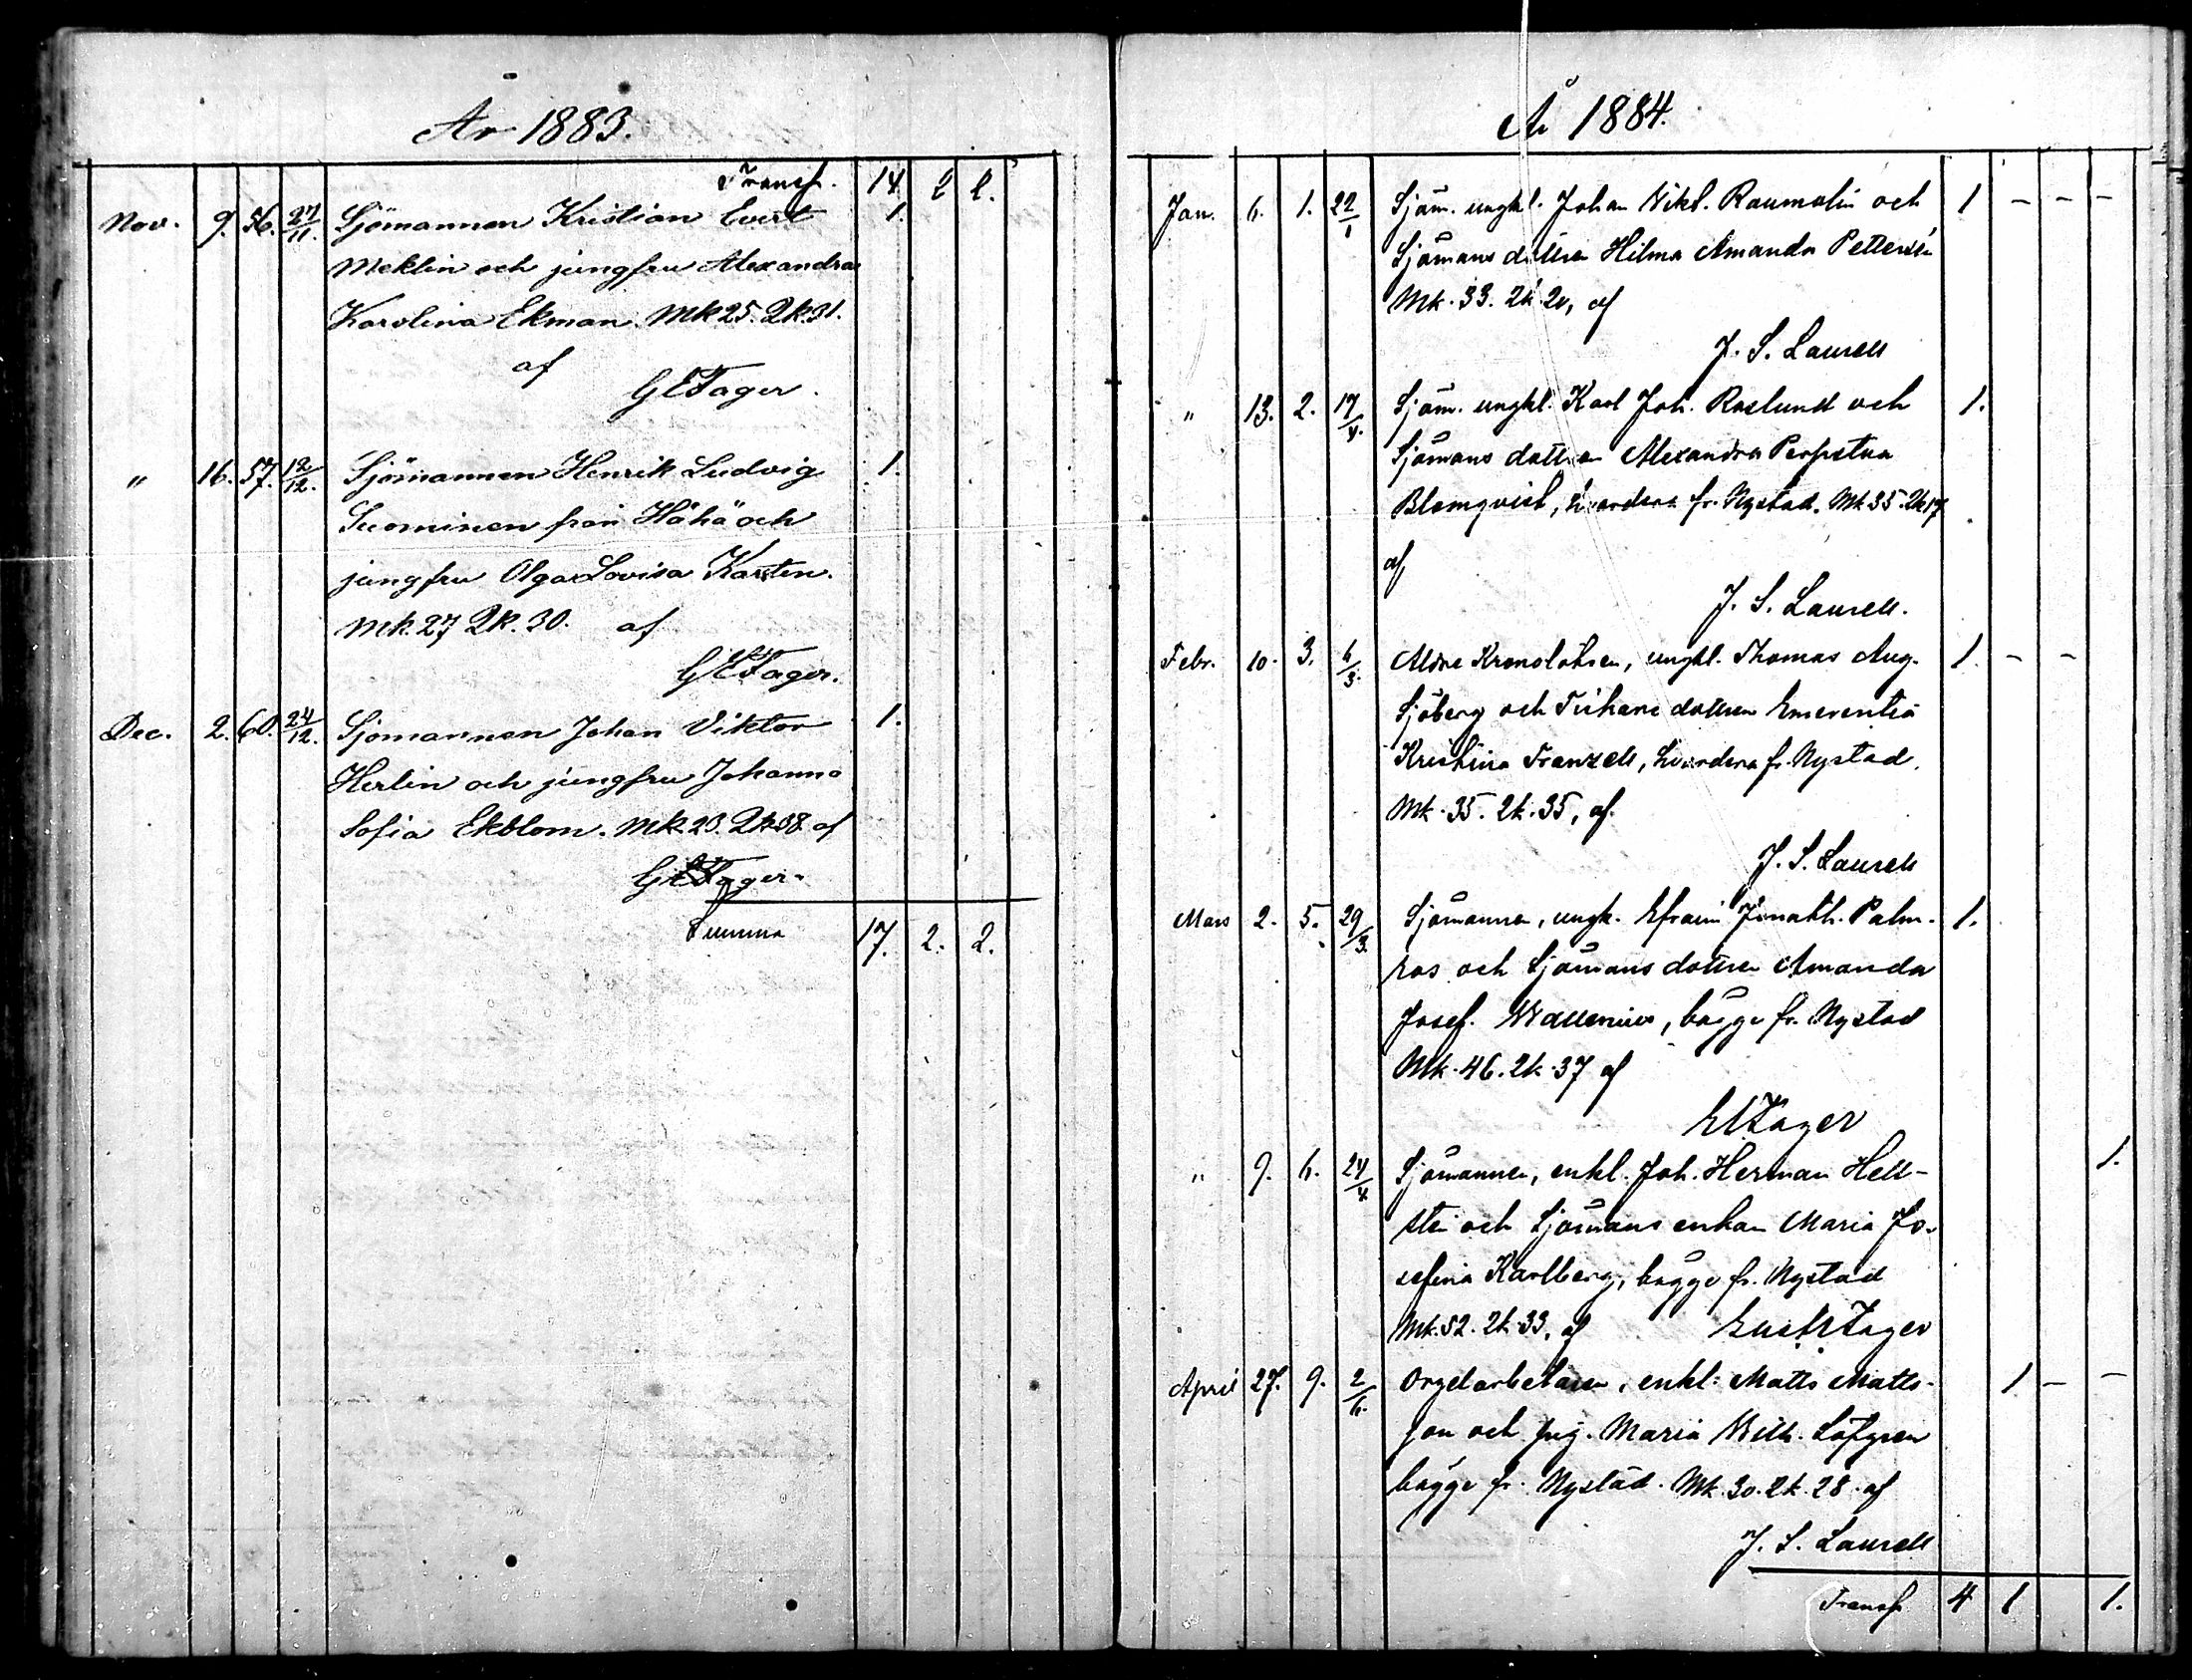 År 1883.
Transf. 14 2 2.
Nov. 9. 56. 27/11. Sjömannen Kristian Evert 1.
Meklin och jungfru Alexandra
Karolina Ekman. Mk 25. Qk. 31.
af
GETager.
" 16. 57. 12/12. Sjömannen Henrik Ludvig 1.
Suominen från Höhö och
jungfru Olga Lovisa Karsten.
Mk. 27 Qk. 30. af
GETager.
Dec. 2. 60. 24/12. Sjömannen Johan Viktor 1.
Herlin och jungfru Johanna
Sofia Ekblom. Mk. 23. Qk. 38 af
GETager.
Summa 17. 2. 2.
År 1884.
Jan. 6. 1. 22/1 Sjöm. ungkl. Johan Vikt. Raumolin och 1 – – –
Sjömans dottren Hilma Amanda Petterson
Mk. 33. Qk. 20, af
J. S. Laurell
" 13. 2. 17/4. Sjöm. ungkl. Karl Joh. Roslund och 1.
Sjömans dottren Alexandra Perpetua
Blomqvist, hvardera fr. Nystad. Mk 35. Qk 17
af
J. S. Laurell.
Febr. 10. 3. 6/3. Äldre Kronolotsen, ungkl. Thomas Aug. 1. – –
Sjöberg och dottren Emerentia
Kristina Franzell, hvardera fr. Nystad.
Mk. 35. Qk. 35, af.
J. S. Laurell
Mars 2. 5. 29/3. Sjömannen, ungk. Efraim Jonath. Palm- 1.
ros och Sjömans dottren Amanda
Josef. Wallenius, bägge fr. Nystad
Mk. 46. Qk. 37 af
Tager
" 9. 6. 24/4 Sjömannen, enkl. Joh. Herman Hell- 1.
sten och Sjömans enkan Maria Jo-
sefina Karlberg, bägge fr. Nystad
Mk. 52. Qk. 33, af Tager
April 27. 9. 2/6. Orgelarbetaren, enkl. Matts Matts- 1 – –
son och Maria Wilh. Löfgren
bägge fr. Nystad. Mk. 30. Qk. 28. af
J. S. Laurell
Transf. 4 1 1.